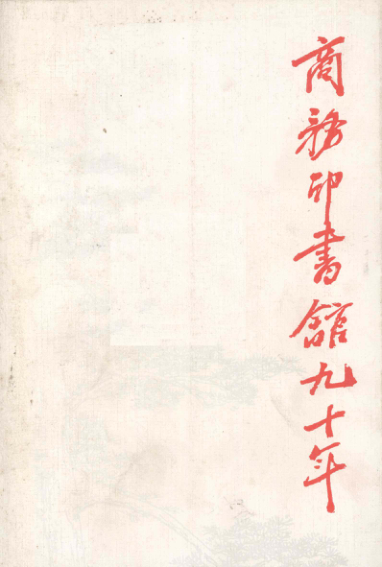 商務印書館九十年